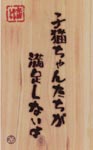 子猫ちゃんたちが
満足しないよ